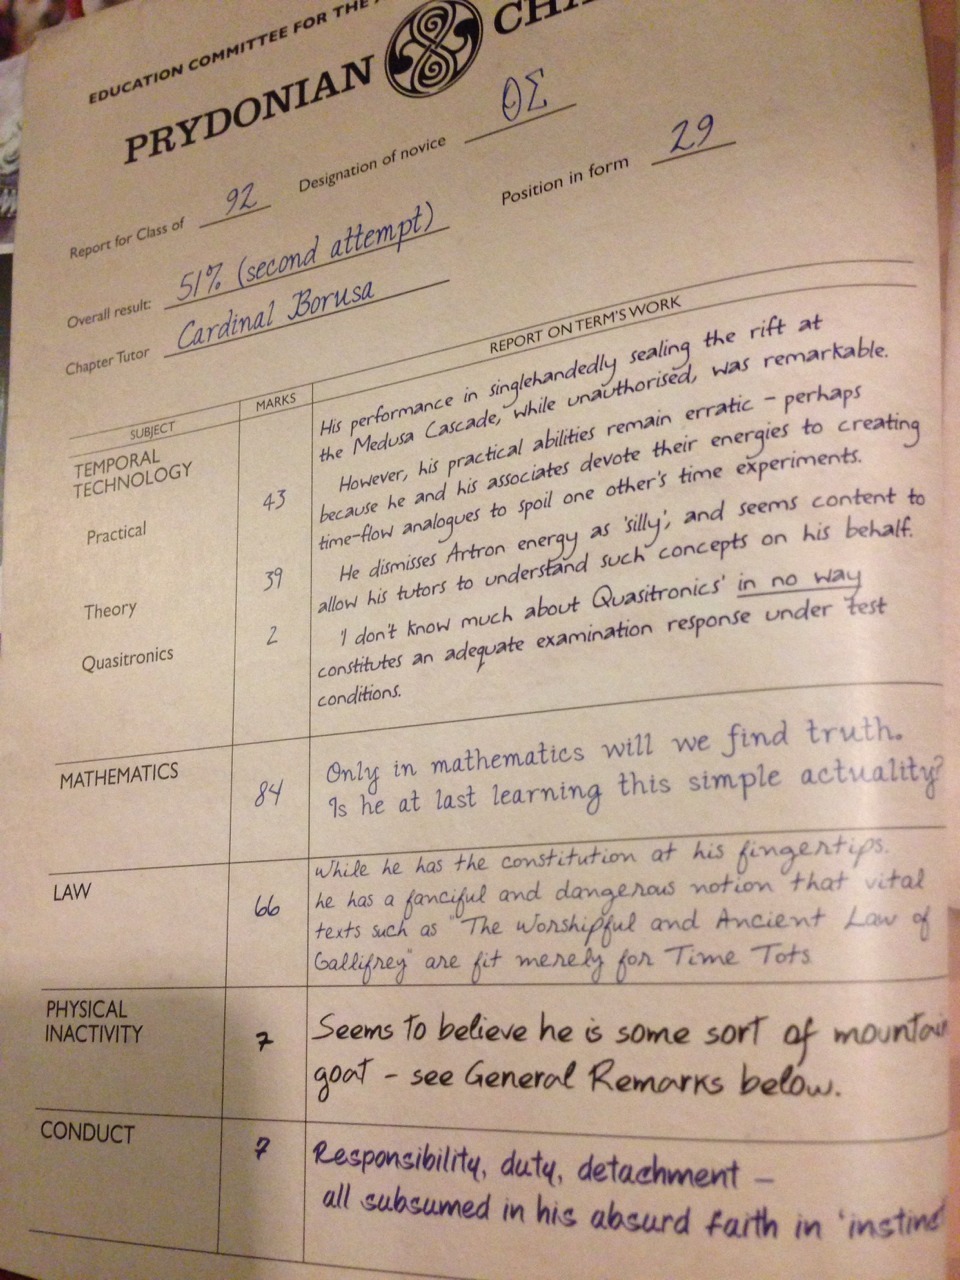 EDUCATION COMMITTEE FOR THE
PRYDONIAN
Report for Class of 92 Designation of novice ΘΣ
Overall result: 51% (second attempt) Position in form 29
Chapter Tutor Cardinal Borusa
SUBJECT MARKS REPORT ON TERM'S WORK
TEMPORAL
TECHNOLOGY
Practical 43
Theory 39
Quasitronics 2
His performance in singlehandedly sealing the rift at
the Medusa Cascade, while unauthorised, was remarkable.
However, his practical abilities remain erratic – perhaps
because he and his associates devote their energies to creating
time-flow analogues to spoil one other's time experiments.
He dismisses Artron energy as 'silly', and seems content to
allow his tutors to understand such concepts on his behalf.
'I don't know much about Quasitronics' in no way
constitutes an adequate examination response under test
conditions.
MATHEMATICS 84
Only in mathematics will we find truth.
Is he at last learning this simple actuality?
LAW 66
While he has the constitution at his fingertips.
he has a fanciful and dangerous notion that vital
texts such as "The Worshipful and Ancient Law of
Gallifrey" are fit merely for Time Tots
PHYSICAL
INACTIVITY 7
Seems to believe he is some sort of mountain
goat – see General Remarks below.
CONDUCT 7
Responsibility, duty, detachment –
all subsumed in his absurd faith in